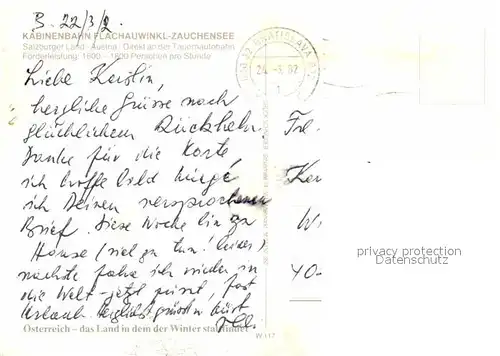 B. 22/3/2.
KABINENBAHN FLACHAUWINKL-ZAUCHENSEE
Salzburger Land · Austria · Direkt an der Tauernautobahn
Förderleistung: 1600 - 1800 Personen pro Stunde
BRATISLAVA
24.-3.82
Liebe Kerstin,
herzliche Grüsse nach
glücklichem Rückkehr.
Danke für die Karte,
ich hoffe bald
ich Deinen versprochenen
Brief. Diese Woche bin zu
House (viel zu tun! leider)
nächste fahre ich wieder in
die Welt - jetzt
Urlaub.
Österreich – das Land in dem der Winter stattfindet
Frl.
Ker
Wi
40-
privacy protection
Datenschutz